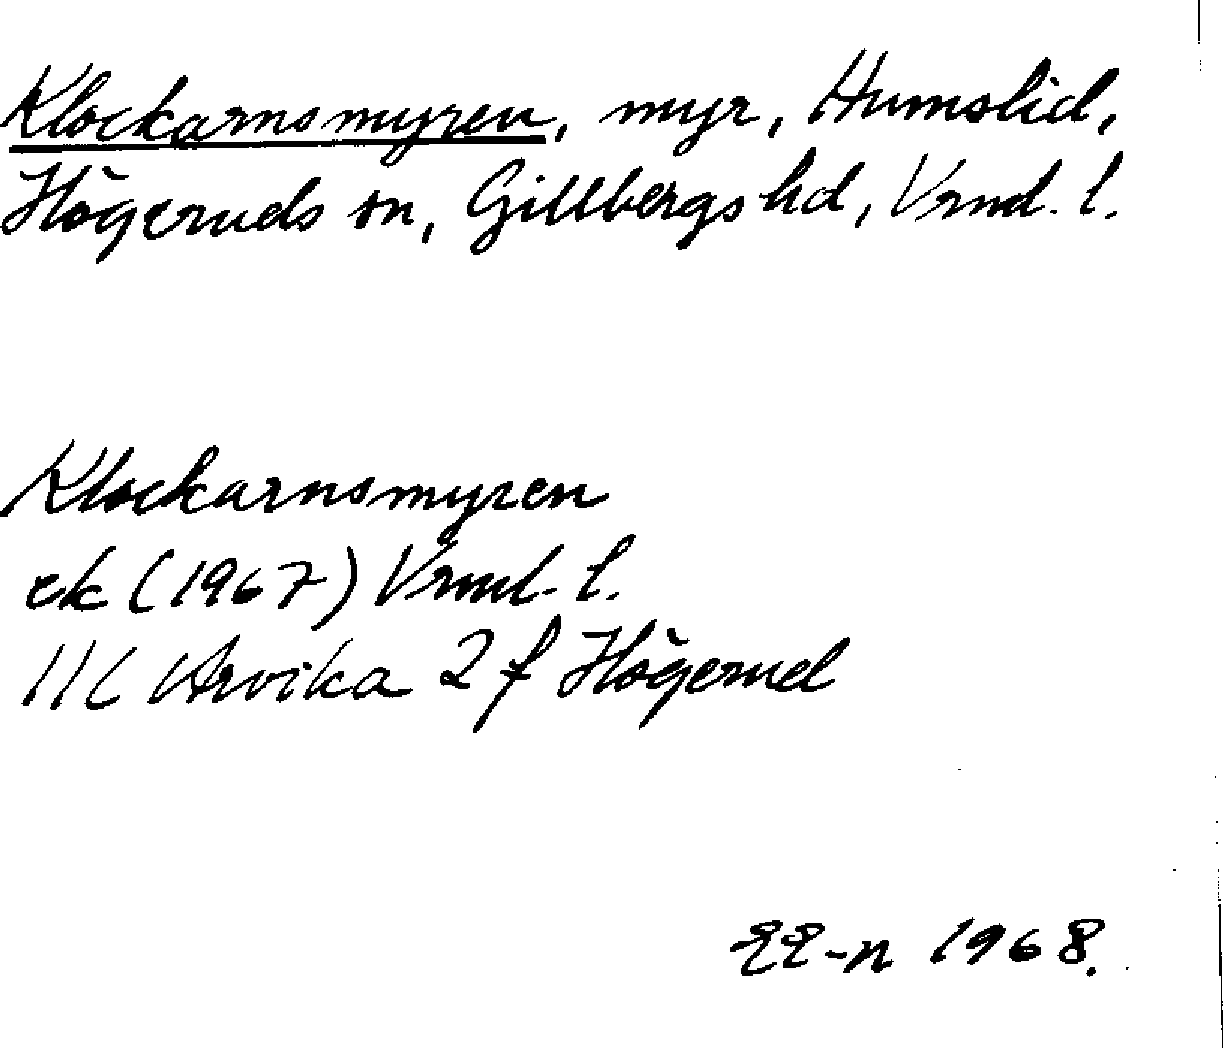 Klockarnsmyren, myr, Humslid,
Högeruds sn, Gillbergs hd, Vrml. l.
Klockarnsmyren
ek (1967) Vrml. l.
11C Arvika 2 f Högerud
EE-n 1968.